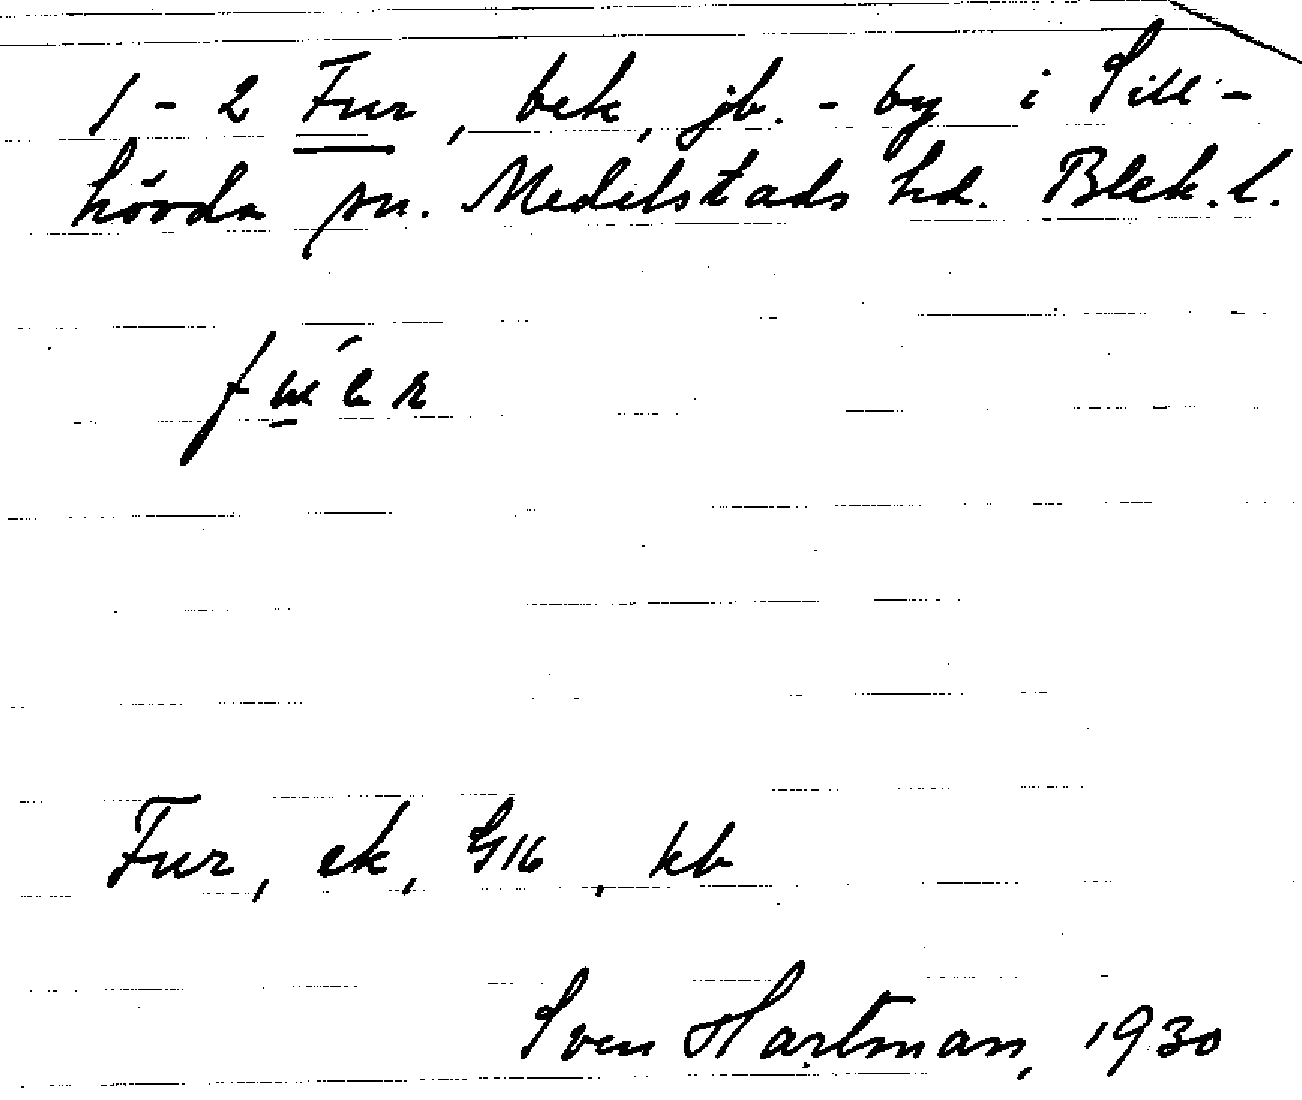 1-2 Fur, bek, jb.-by i Sill-
hövda sn. Medelstads hd. Blek. l.
Fur, ek, G16, kb
Sven Hartman, 1930